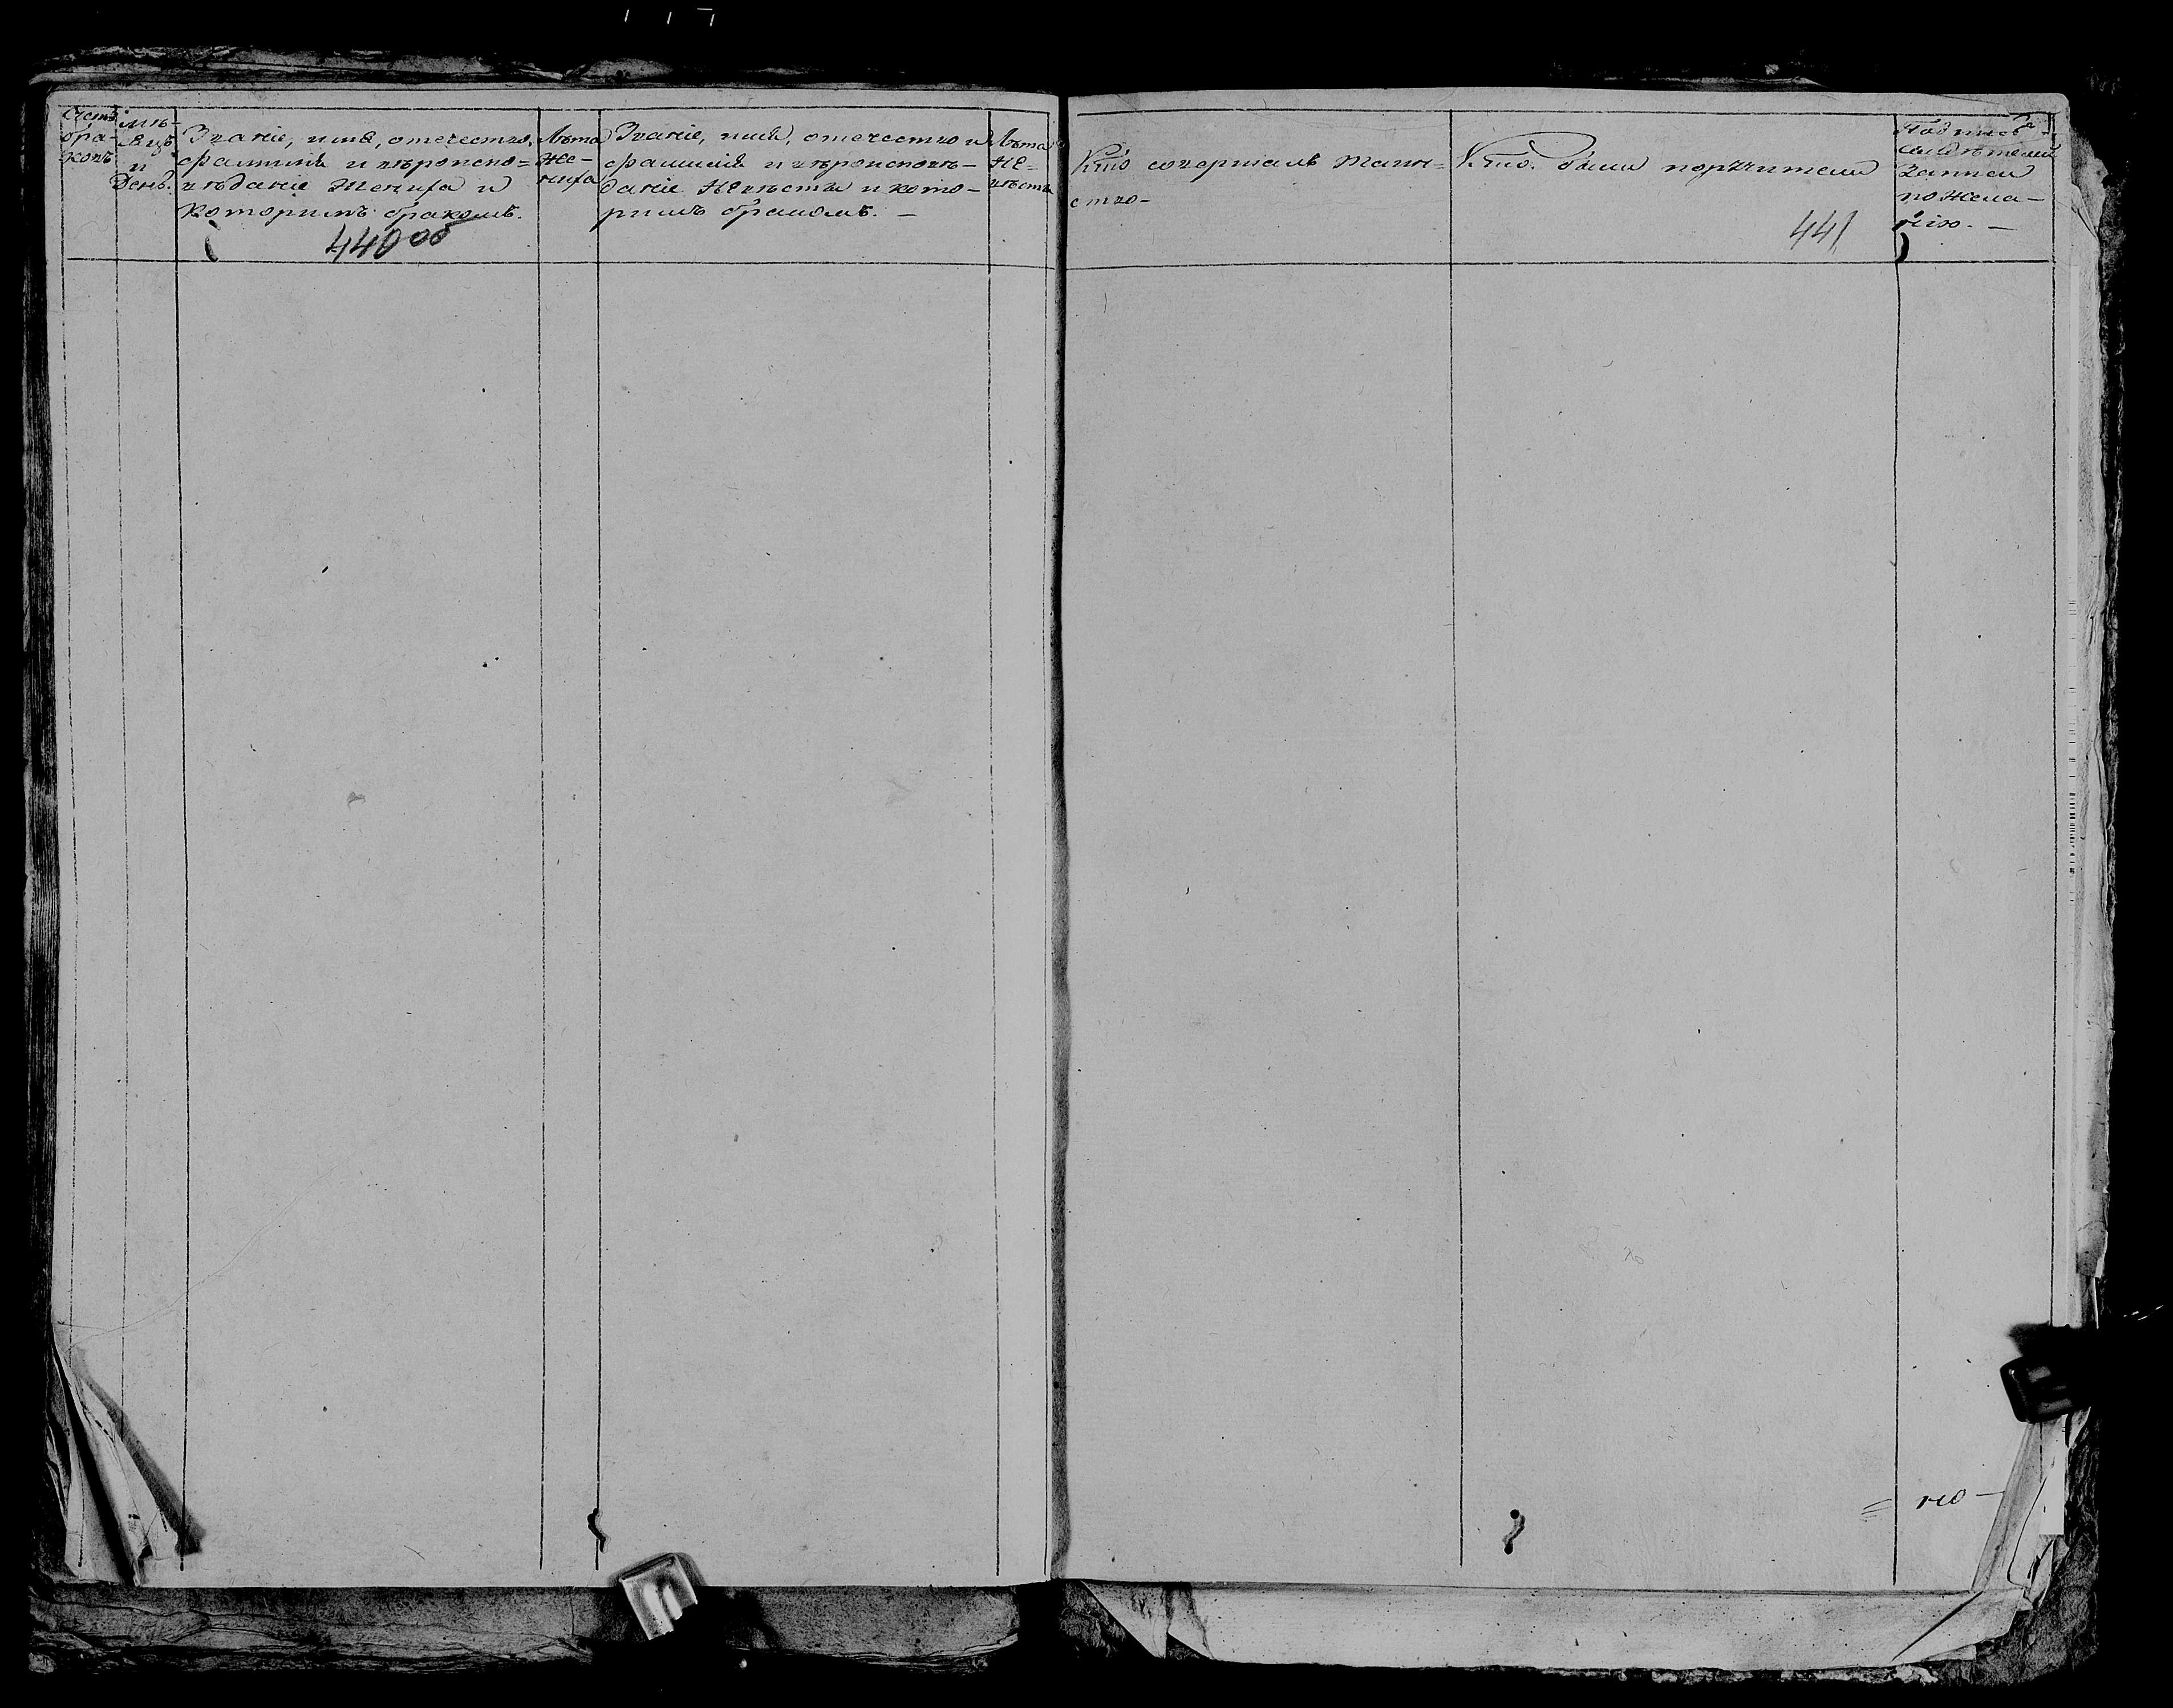 Счетъ
бра-
ковъ
Мѣ-
сяцъ
и
день.
Званіе, имя, отечество,
фамилія и вѣроиспо=
вѣданіе жениха и
которымъ бракомъ.
440 об
Лѣта
же-
ниха
Званіе, имя, отечество и
фамилія и вѣроисповѣ-
даніе невѣсты и кото-
рымъ бракомъ. —
Лѣта
не=
вѣсты
Кто совершалъ таин=
ство-
Кто были поручители
441
Подпись
свидѣтелей
записи
по жела-
нію. —
= но —